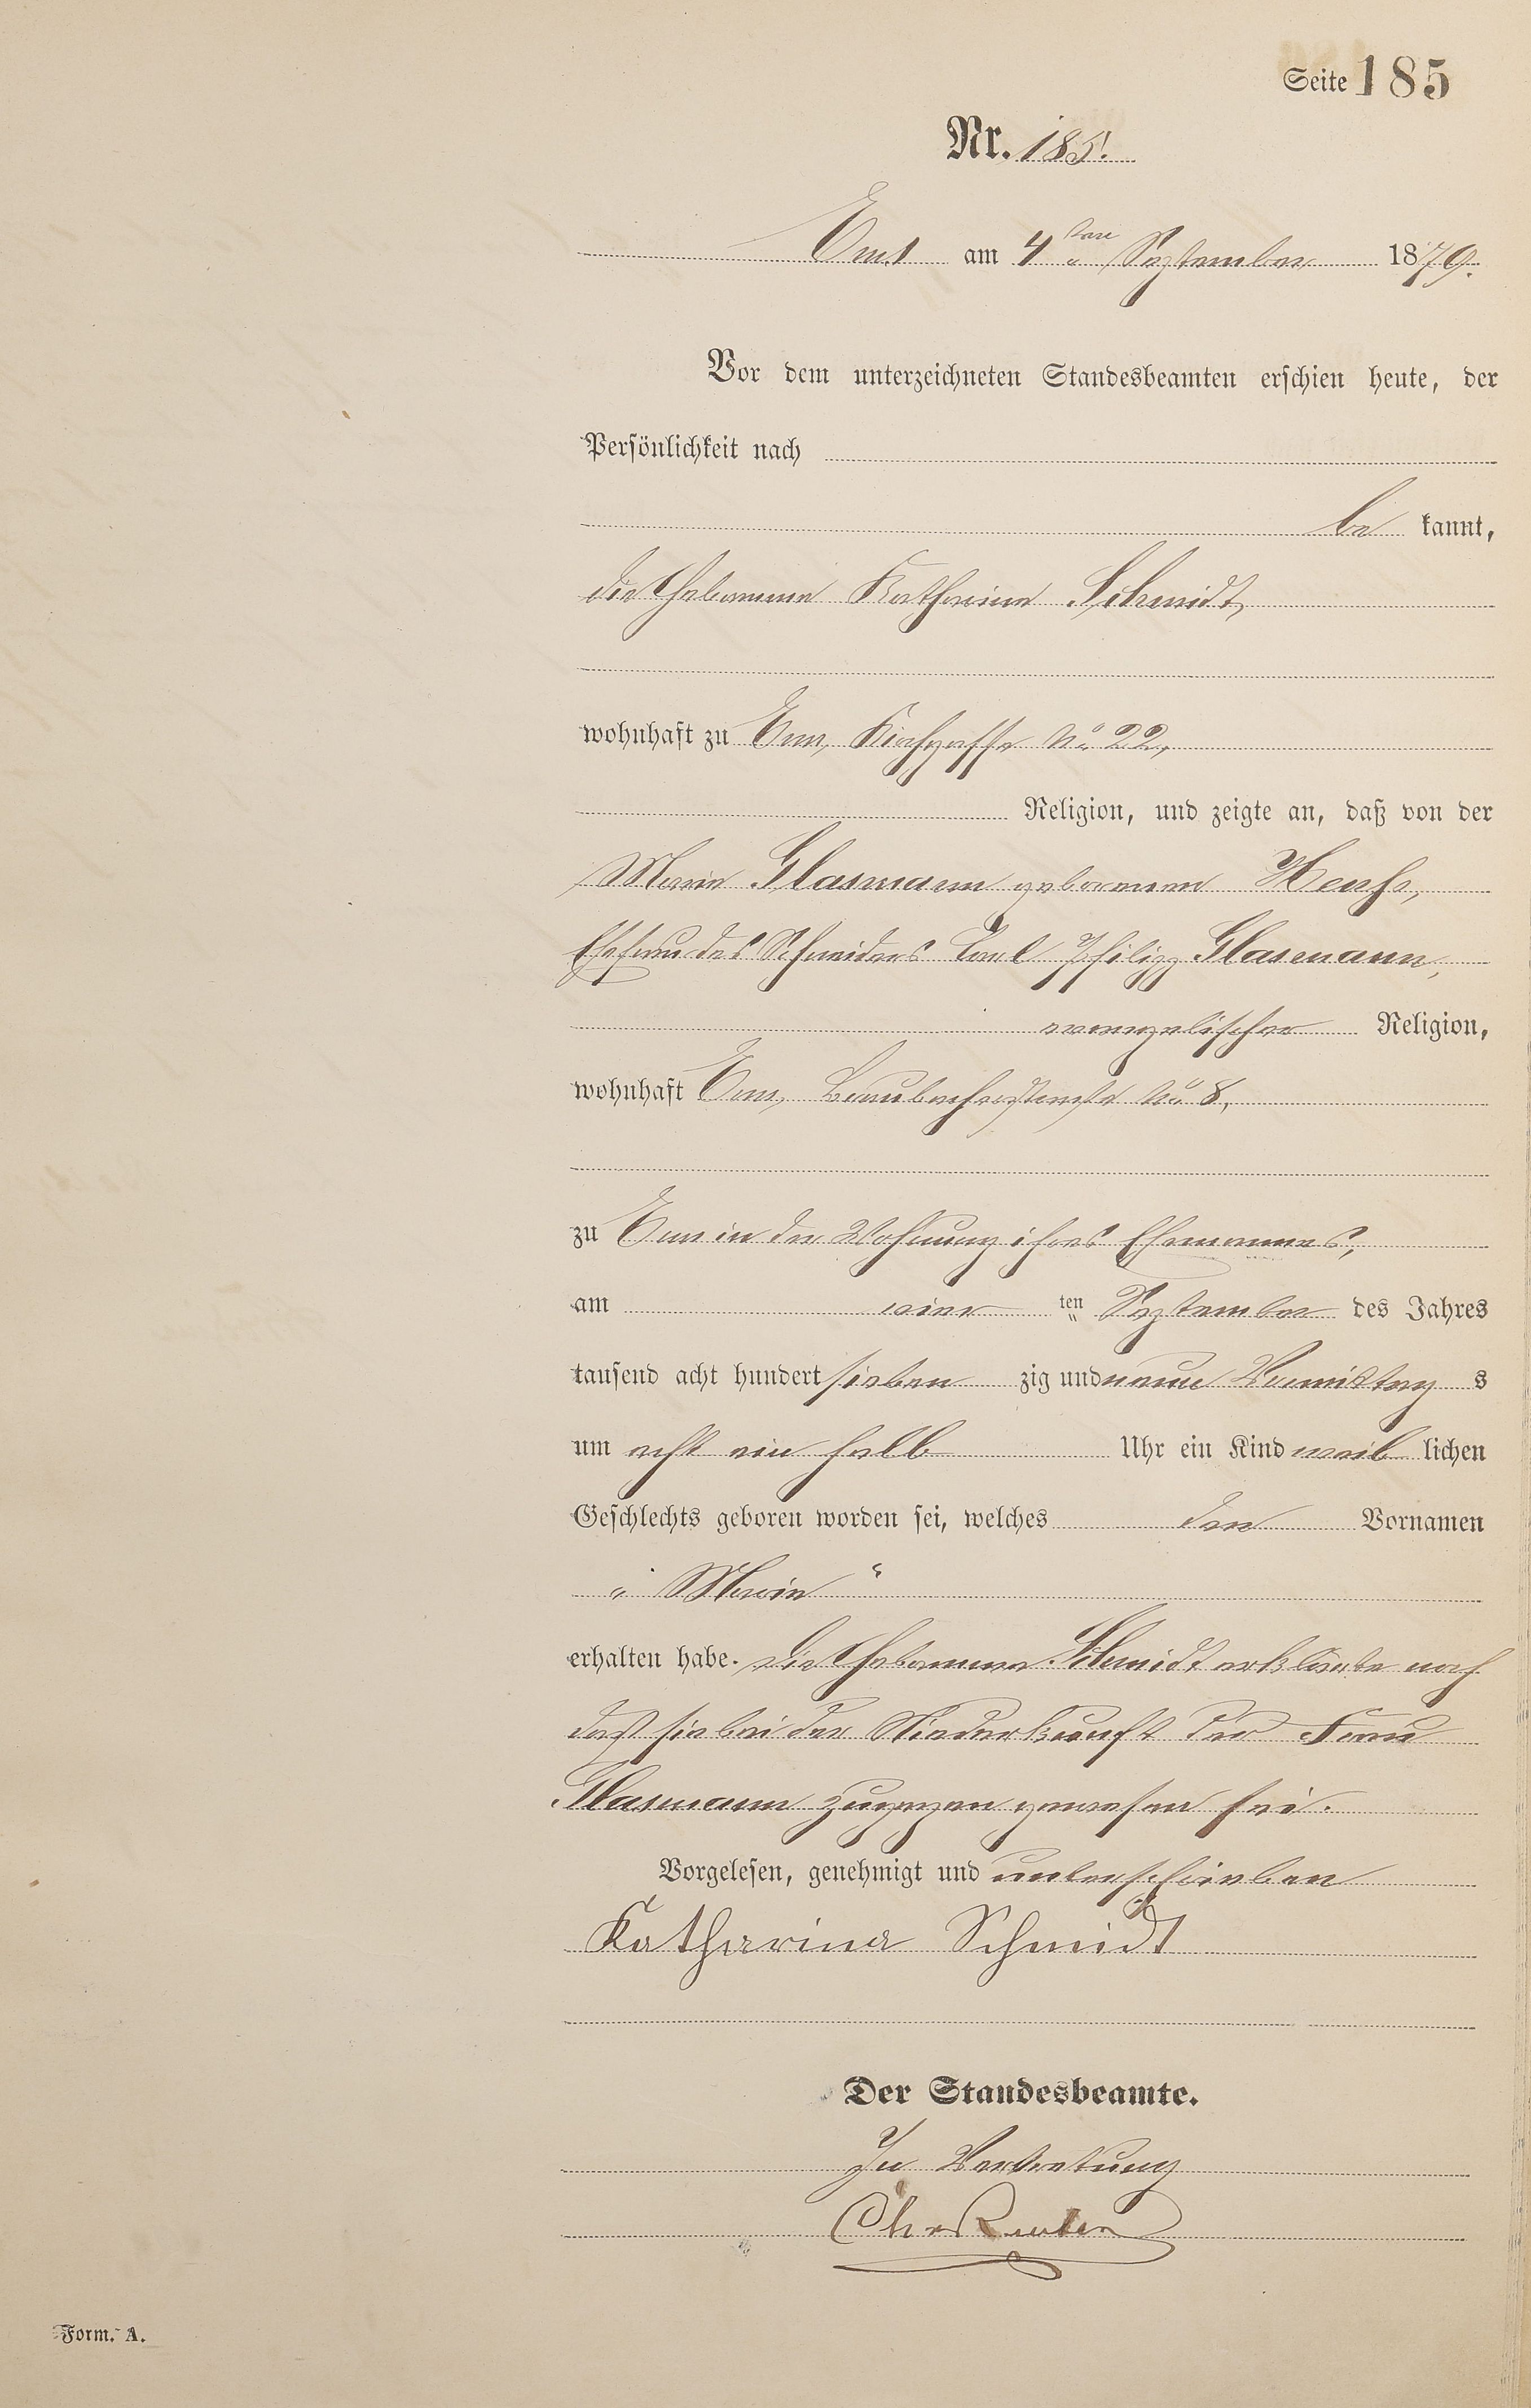 Seite 185
Nr. 185.
Ems am 4ten September 1879.
Vor dem unterzeichneten Standesbeamten erschien heute, der
Persönlichkeit nach
be kannt,
die Hebamme Katharina Schmidt,
wohnhaft zu Ems, Kirchgasse No 22,
Religion, und zeigte an, daß von der
Marie Glasmann geborenen
Ehefrau des Schneiders Carl Philipp Glasmann,
evangelischer Religion,
wohnhaft Ems, Braubacherstraße No 8,
zu Ems in der Wohnung ihres Ehemannes,
am vier ten September des Jahres
tausend acht hundert sieben zig und neun Vormittag s
um acht ein halb Uhr ein Kind weib lichen
Geschlechts geboren worden sei, welches den Vornamen
„ Marie “
erhalten habe. Die Hebamme Schmidt erklärte noch
daß sie bei der Niederkunft der Frau
Glasmann zugegen gewesen sei.
Vorgelesen, genehmigt und unterschrieben
Katharina Schmidt
Der Standesbeamte.
In Vertretung
Form. A.